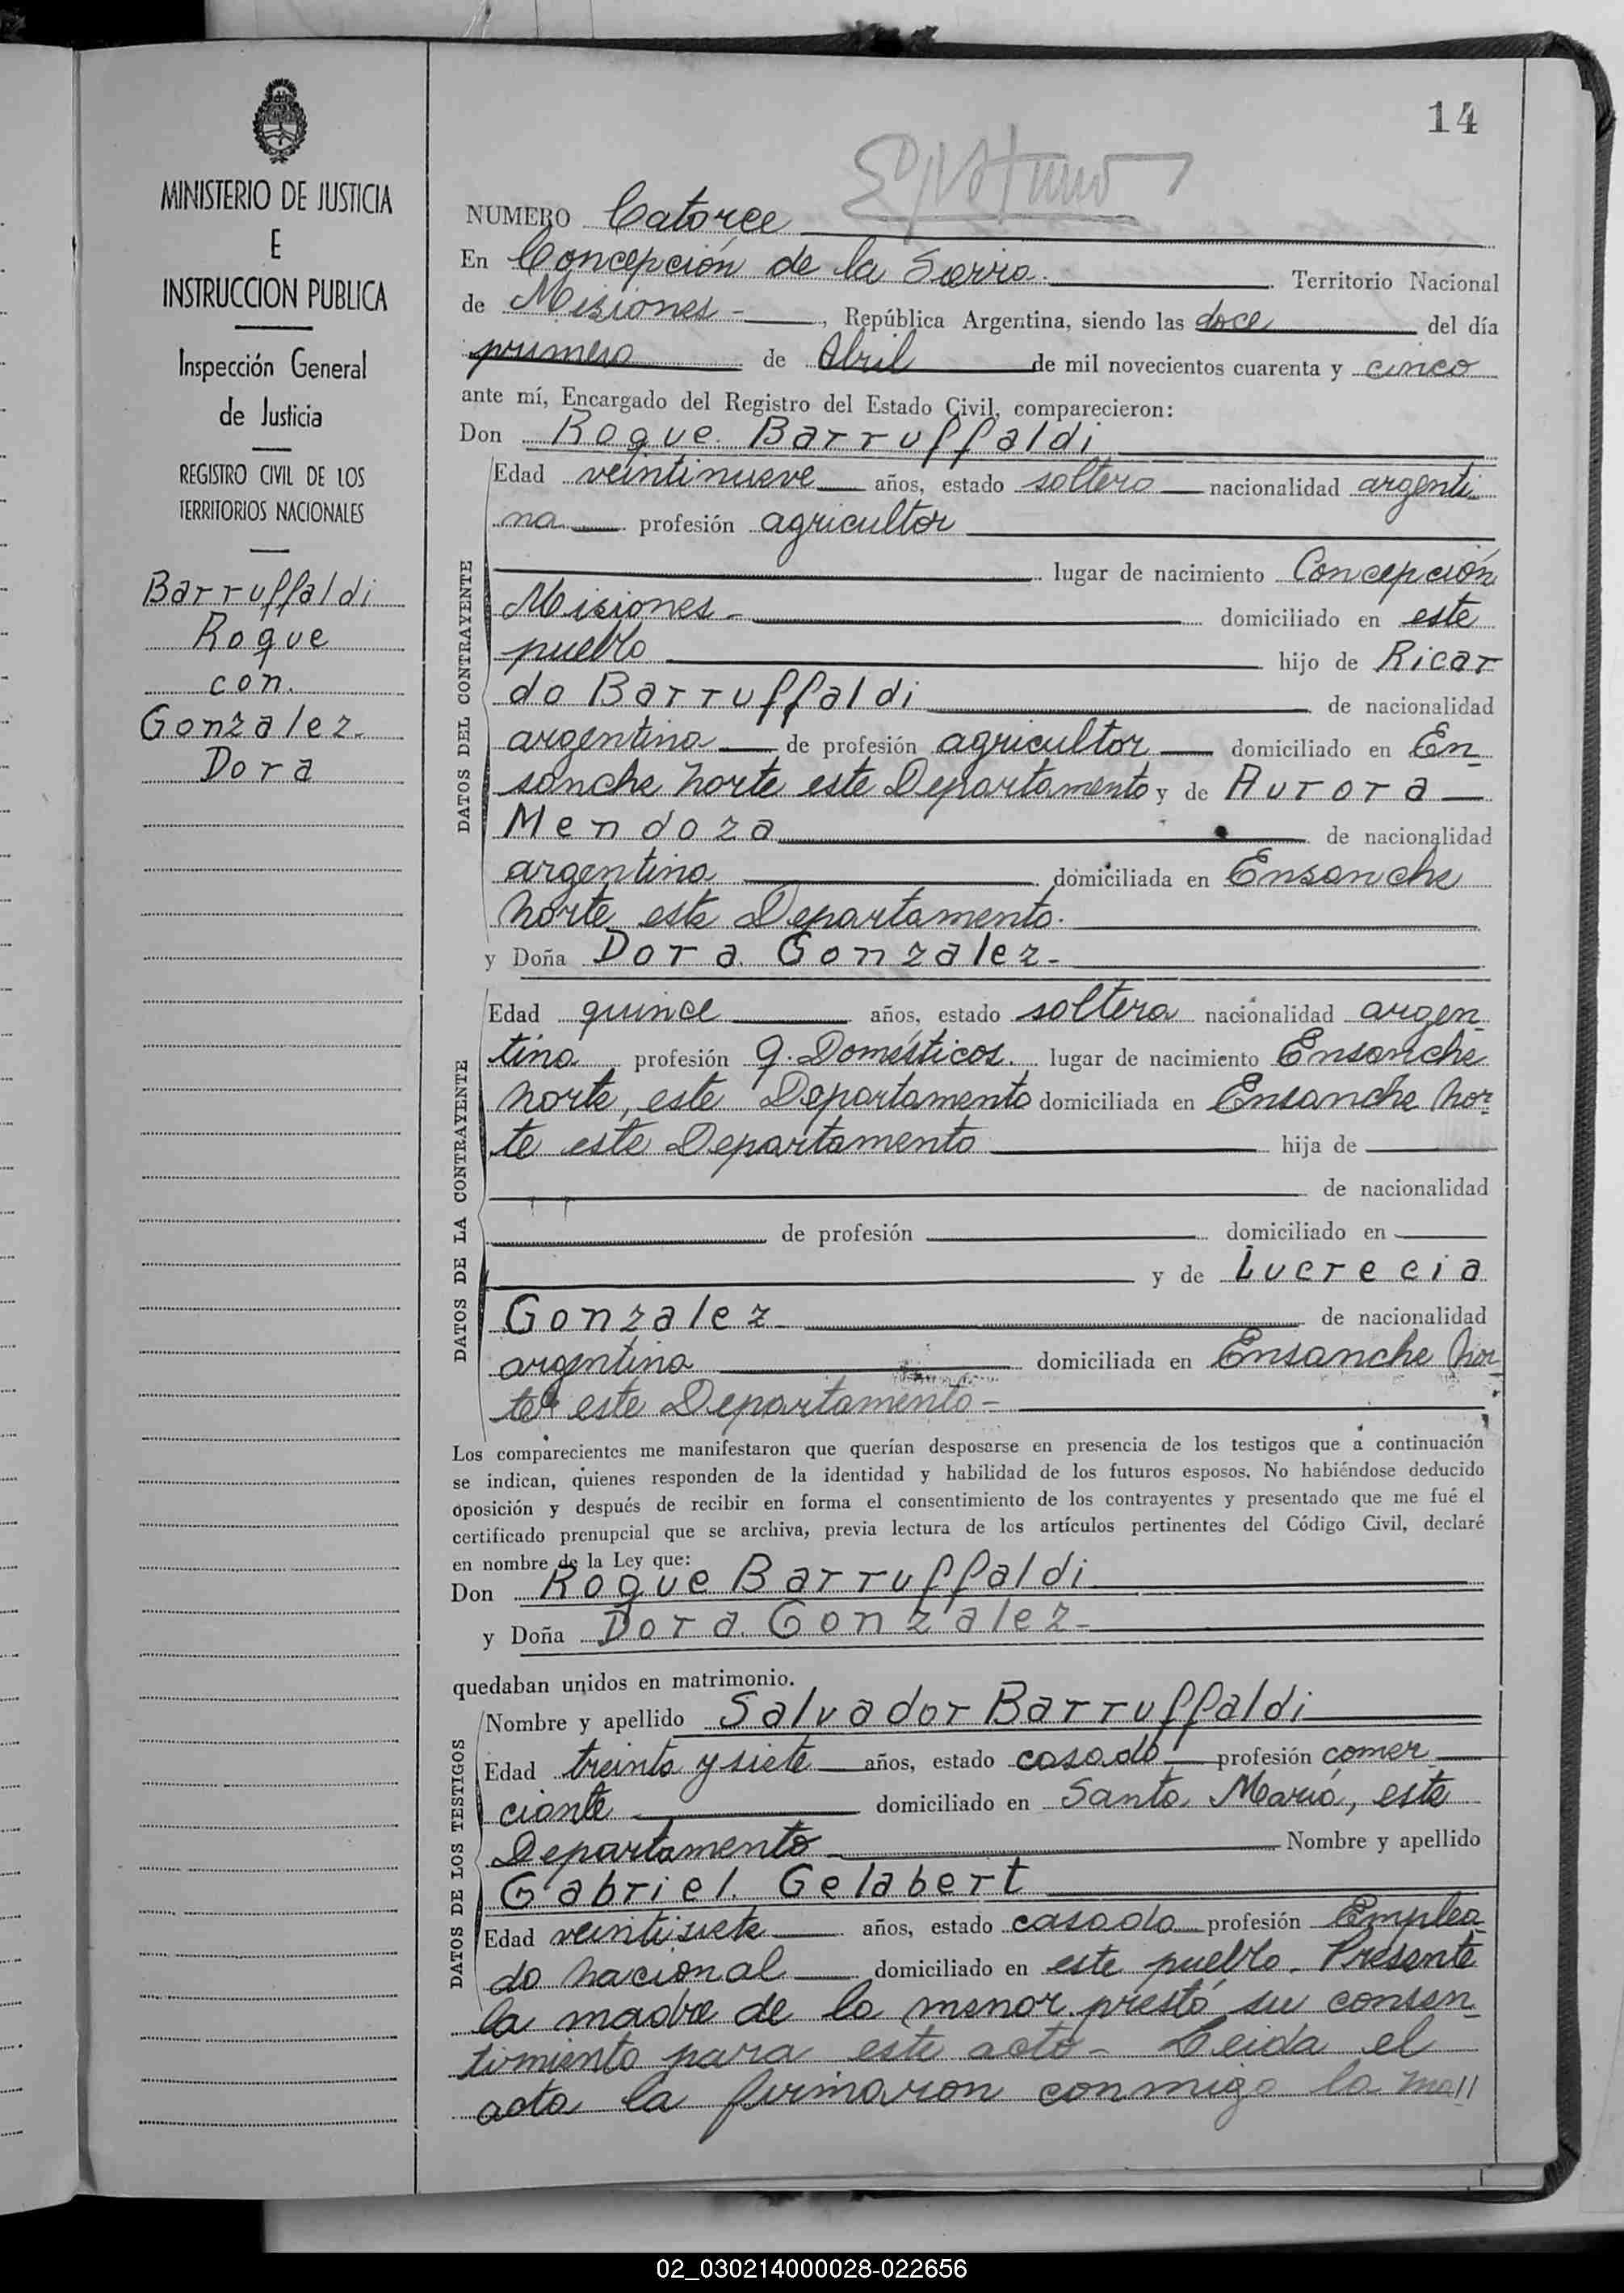 14
MINISTERIO DE JUSTICIA
E
INSTRUCCION PUBLICA
Inspección General
de Justicia
REGISTRO CIVIL DE LOS
TERRITORIOS NACIONALES
Barruffaldi
Roque
con.
Gonzalez.
Dora
NUMERO Catorce
En Concepción de la Sierra. Territorio Nacional
de Misiones -, República Argentina, siendo las doce del día
primero de Abril de mil novecientos cuarenta y cinco
ante mí, Encargado del Registro del Estado Civil, comparecieron:
Don Roque Barruffaldi
DATOS DEL CONTRAYENTE
Edad veintinueve años, estado soltero nacionalidad argenti
na profesión agricultor
lugar de nacimiento Concepción
Misiones - domiciliado en este
pueblo hijo de Ricar
do Barruffaldi de nacionalidad
argentina de profesión agricultor domiciliado en En-
sanche Norte este Departamento y de Aurora
Mendoza de nacionalidad
argentina domiciliada en Ensanche
Norte este Departamento.
y Doña Dora Gonzalez-
DATOS DE LA CONTRAYENTE
Edad quince años, estado soltera nacionalidad argen-
tina profesión q. Domésticos. lugar de nacimiento Ensanche
Norte, este Departamento domiciliada en Ensanche Nor-
te este Departamento hija de
de nacionalidad
de profesión domiciliado en
y de Lucrecia
Gonzalez de nacionalidad
argentina domiciliada en Ensanche Nor-
te este Departamento-
Los comparecientes me manifestaron que querían desposarse en presencia de los testigos que a continuación
se indican, quienes responden de la identidad y habilidad de los futuros esposos. No habiéndose deducido
oposición y después de recibir en forma el consentimiento de los contrayentes y presentado que me fué el
certificado prenupcial que se archiva, previa lectura de los artículos pertinentes del Código Civil, declaré
en nombre de la Ley que:
Don Roque Barruffaldi
y Doña Dora Gonzalez-
quedaban unidos en matrimonio.
DATOS DE LOS TESTIGOS
Nombre y apellido Salvador Barruffaldi
Edad treinta y siete años, estado casado profesión comer
ciante domiciliado en Santa María, este
Departamento Nombre y apellido
Gabriel Gelabert
Edad veintisiete años, estado casado profesión Emplea-
do Nacional domiciliado en este pueblo. Presente
la madre de la menor prestó su consen-
timiento para este acto- Leida el
acta la firmaron conmigo la ma//
02_030214000028-022656